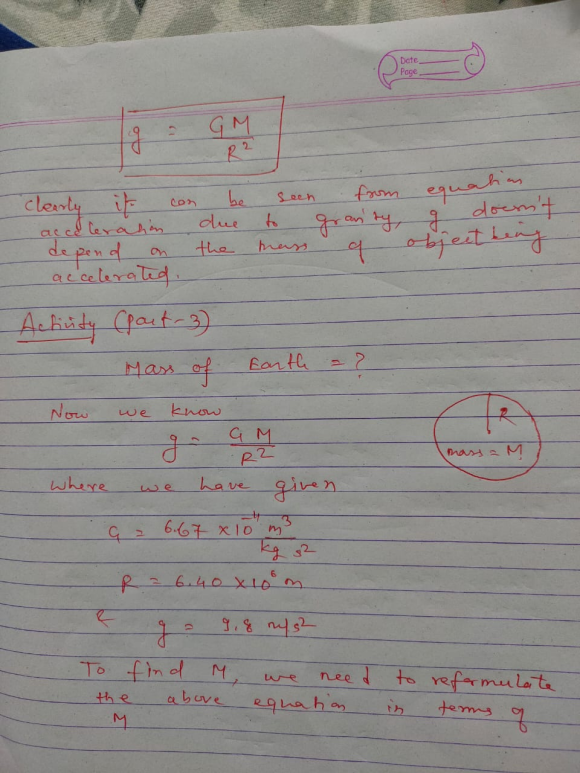 Date
Page
g = GM/R²
Clearly it can be seen from equation
acceleration due to gravity, g doesn't
depend on the mass of object being
accelerated.
Activity (Part-3)
Mass of Earth = ?
Now we know
g = GM/R²
R
mass = M
where we have given
G = 6.67 × 10⁻¹¹ m³/kg s²
R = 6.40 × 10⁶ m
& g = 9.8 m/s²
To find M, we need to reformulate
the above equation in terms of
M